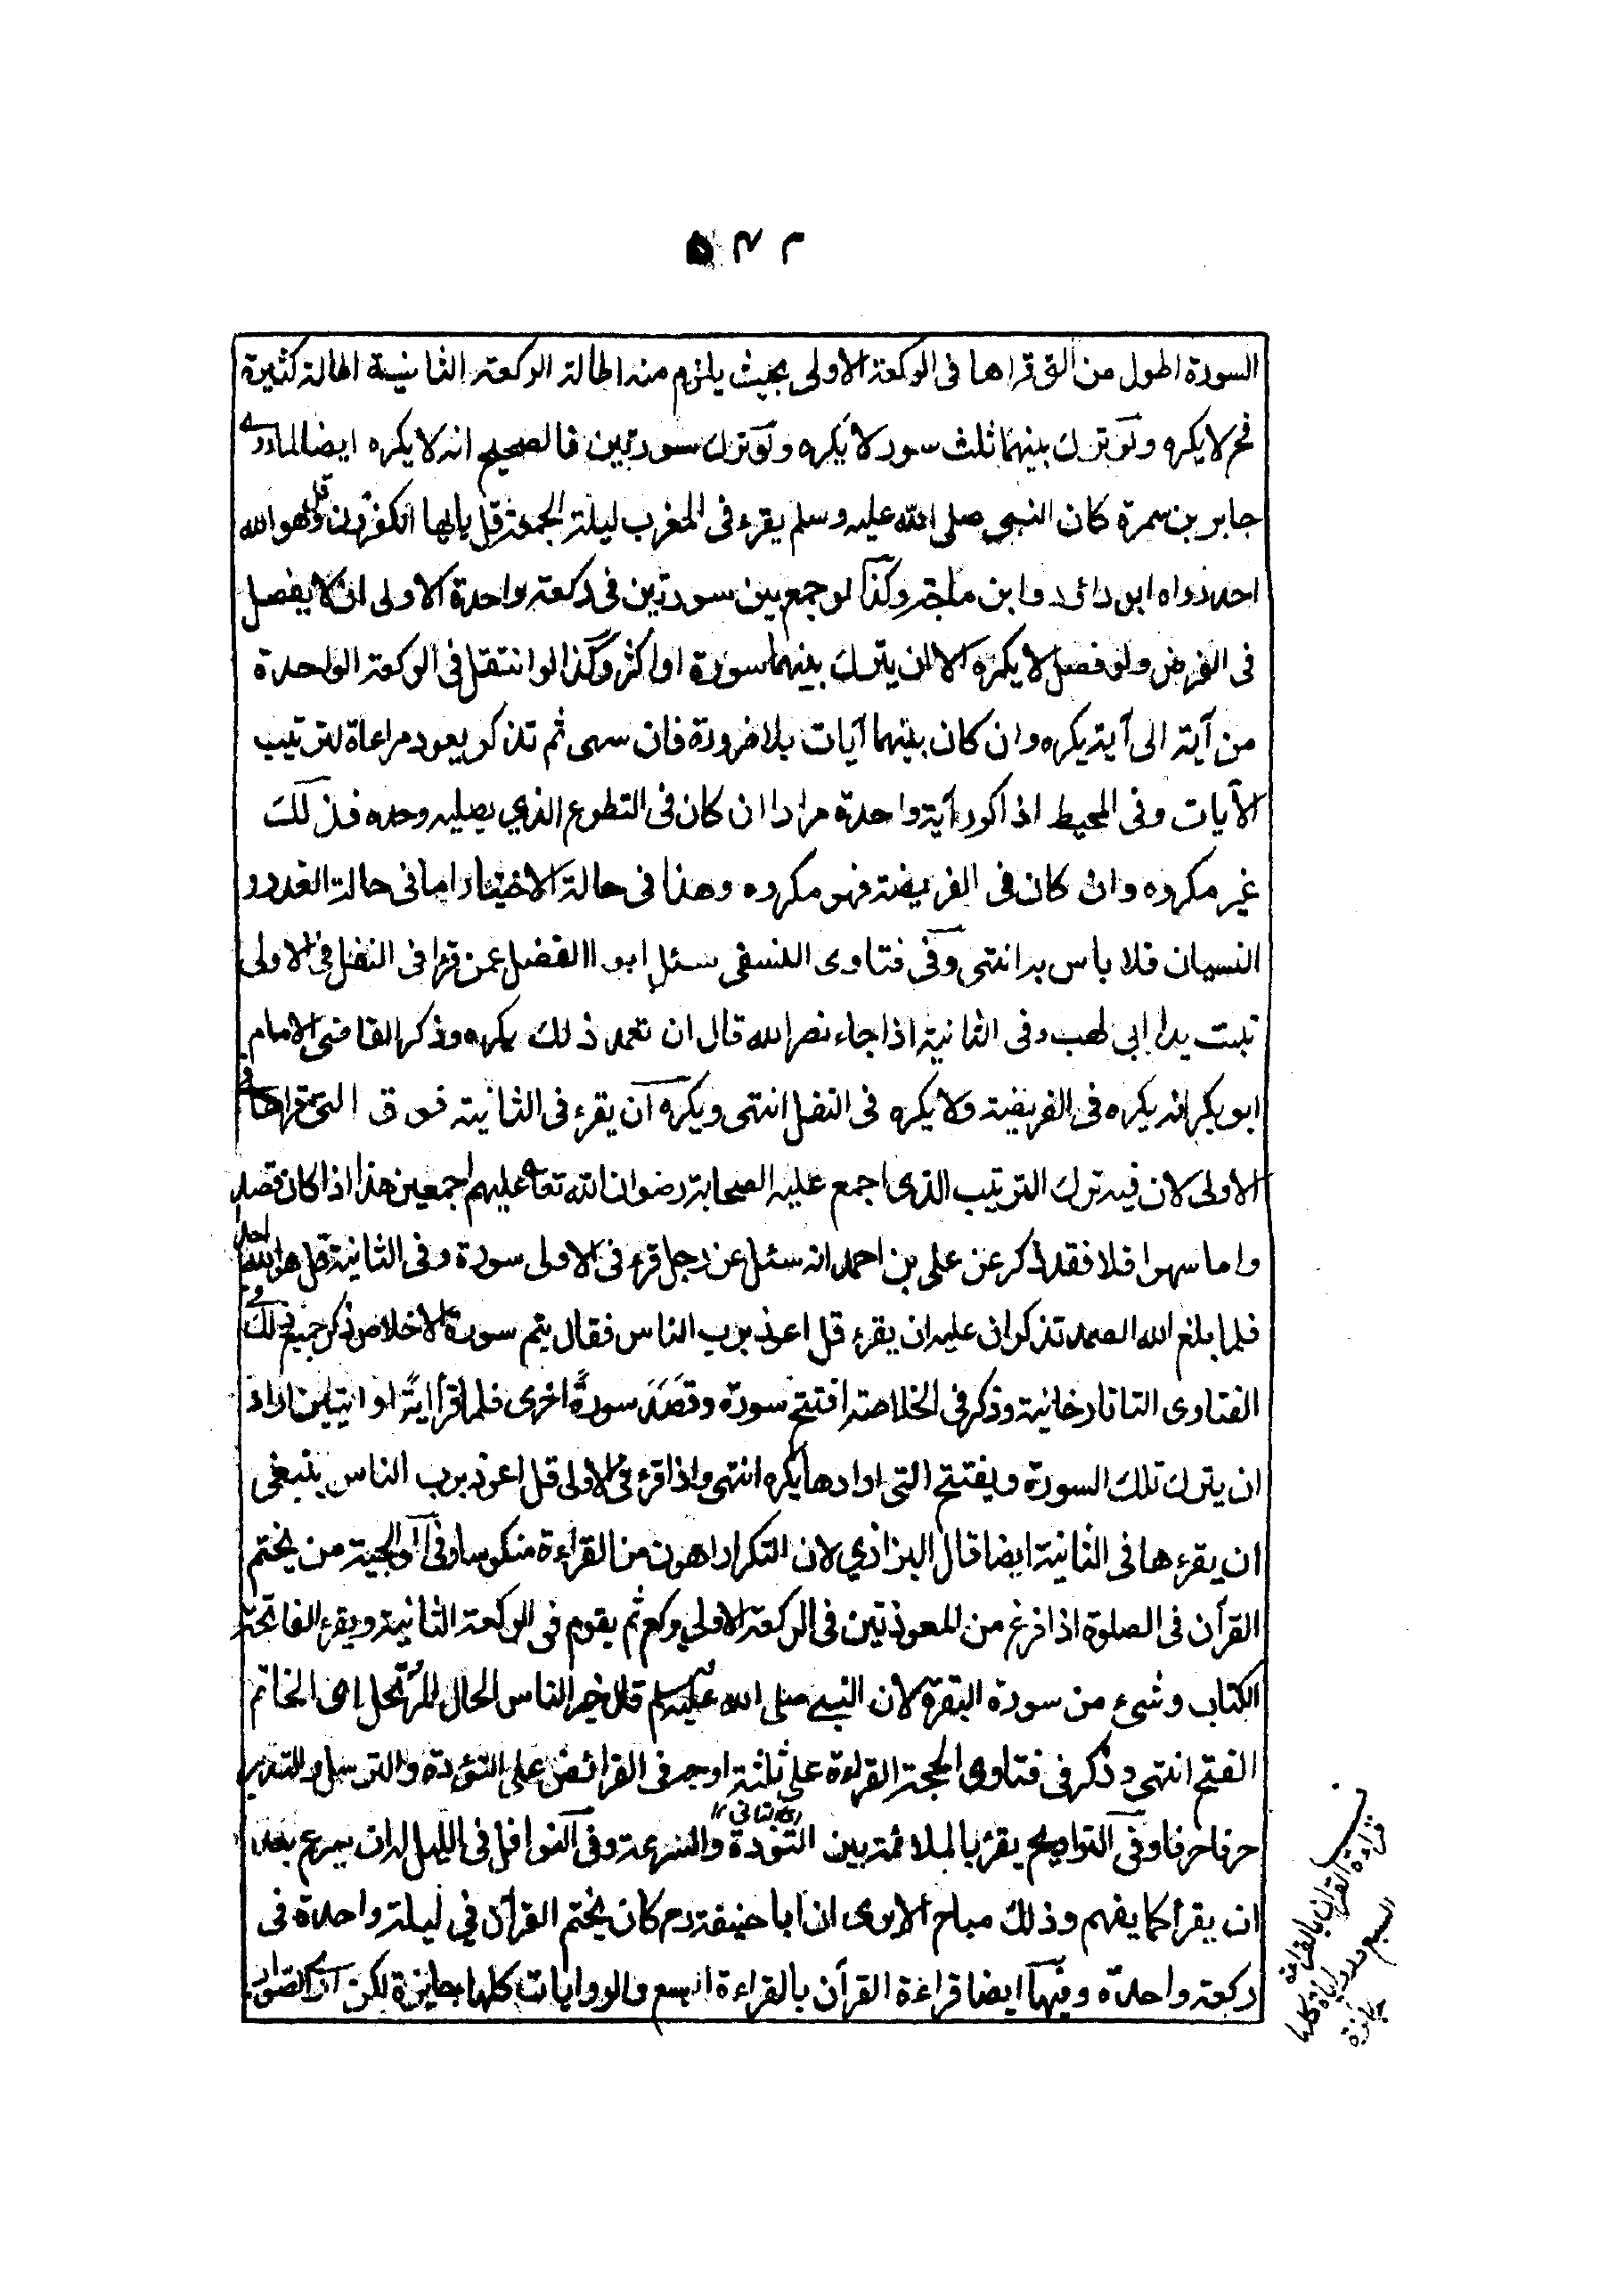 ٥٣٢
السورة اطول من التى قراها فى الركعة الاولى بحيث يلزم منه اطالة الركعة الثانية اطالة كثيرة
فح لا يكره ولو ترك بينهما ثلث سور لا يكره ولو ترك سورتين فالصحيح انه لا يكره ايضا لما روى
جابر بن سمرة كان النبى صلى الله عليه وسلم يقرء فى المغرب ليلة الجمعة قل يايها الكفرون وقل هو الله
احد رواه ابو داؤد وابن ماجة وكذا لو جمع بين سورتين فى ركعة واحدة الاولى ان لا يفصل
فى الفرض ولو فصل لا يكره الا ان يترك بينهما سورة او اكثر وكذا لو انتقل فى الركعة الواحدة
من آية الى آية يكره وان كان بينهما آيات بلا ضرورة فان سهى ثم تذكر يعود مراعاة لترتيب
الآيات وفى المحيط اذا كرر آية واحدة مرارا ان كان فى التطوع الذي يصليه وحده فذلك
غير مكروه وان كان فى الفريضة فهو مكروه وهذا فى حالة الاختيار اما فى حالة العذر و
النسيان فلا باس به انتهى وفى فتاوى النسفى سئل ابو الفضل عمن قرا فى النفل فى الاولى
تبت يدا ابي لهب وفى الثانية اذا جاء نصر الله قال ان تعمد ذلك يكره وذكر القاضى الامام
ابو بكر انه يكره فى الفريضة ولا يكره فى النفل انتهى ويكره ان يقرء فى الثانية فوق التى قراها فى
الاولى لان فيه ترك الترتيب الذى اجمع عليه الصحابة رضوان الله تعا عليهم اجمعين هذا اذا كان قصد
واما سهوا فلا فقد ذكر عن على بن احمد انه سئل عن رجل قرء فى الاولى سورة وفى الثانية قل هو الله احد
فلما بلغ الله الصمد تذكر ان عليه ان يقرء قل اعوذ برب الناس فقال يتم سورة الاخلاص ذكر جميع ذلك فى
الفتاوى التاتارخانية وذكر فى الخلاصة افتتح سورة وقصد سورة اخرى فلما قرأ اية او ايتين اراد
ان يترك تلك السورة ويفتتح التى ارادها يكره انتهى واذا قرء فى الاولى قل اعوذ برب الناس ينبغى
ان يقرءها فى الثانية ايضا قال البزازي لان التكرار اهون من القراءة منكوسا وفى الولوالجية من يختم
القرآن فى الصلوة اذا فرغ من المعوذتين فى الركعة الاولى يركع ثم يقوم فى الركعة الثانية ويقرء الفاتحة
الكتاب وشىء من سورة البقرة لان النبى صلى الله عليه وسلم قال خير الناس الحال المرتحل اى الخاتم
الفتح انتهى وذكر فى فتاوى الحجة القراءة على ثلثة اوجه فى الفرائض على التؤدة والترسل والتدبر
حرفا حرفا وفى التراويح يقرء بالملائمة بين التؤدة والسرعة وفى النوافل فى الليل له ان يسرع بعد
ان يقرأ كما يفهم وذلك مباح الا يرى ان ابا حنيفة رح كان يختم القرآن في ليلة واحدة فى
ركعة واحدة وفيها ايضا قراءة القرآن بالقراءة السبع والروايات كلها جايزة لكن
قراءة القرآن بالقراءة
السبع والروايات كلها
جائزة